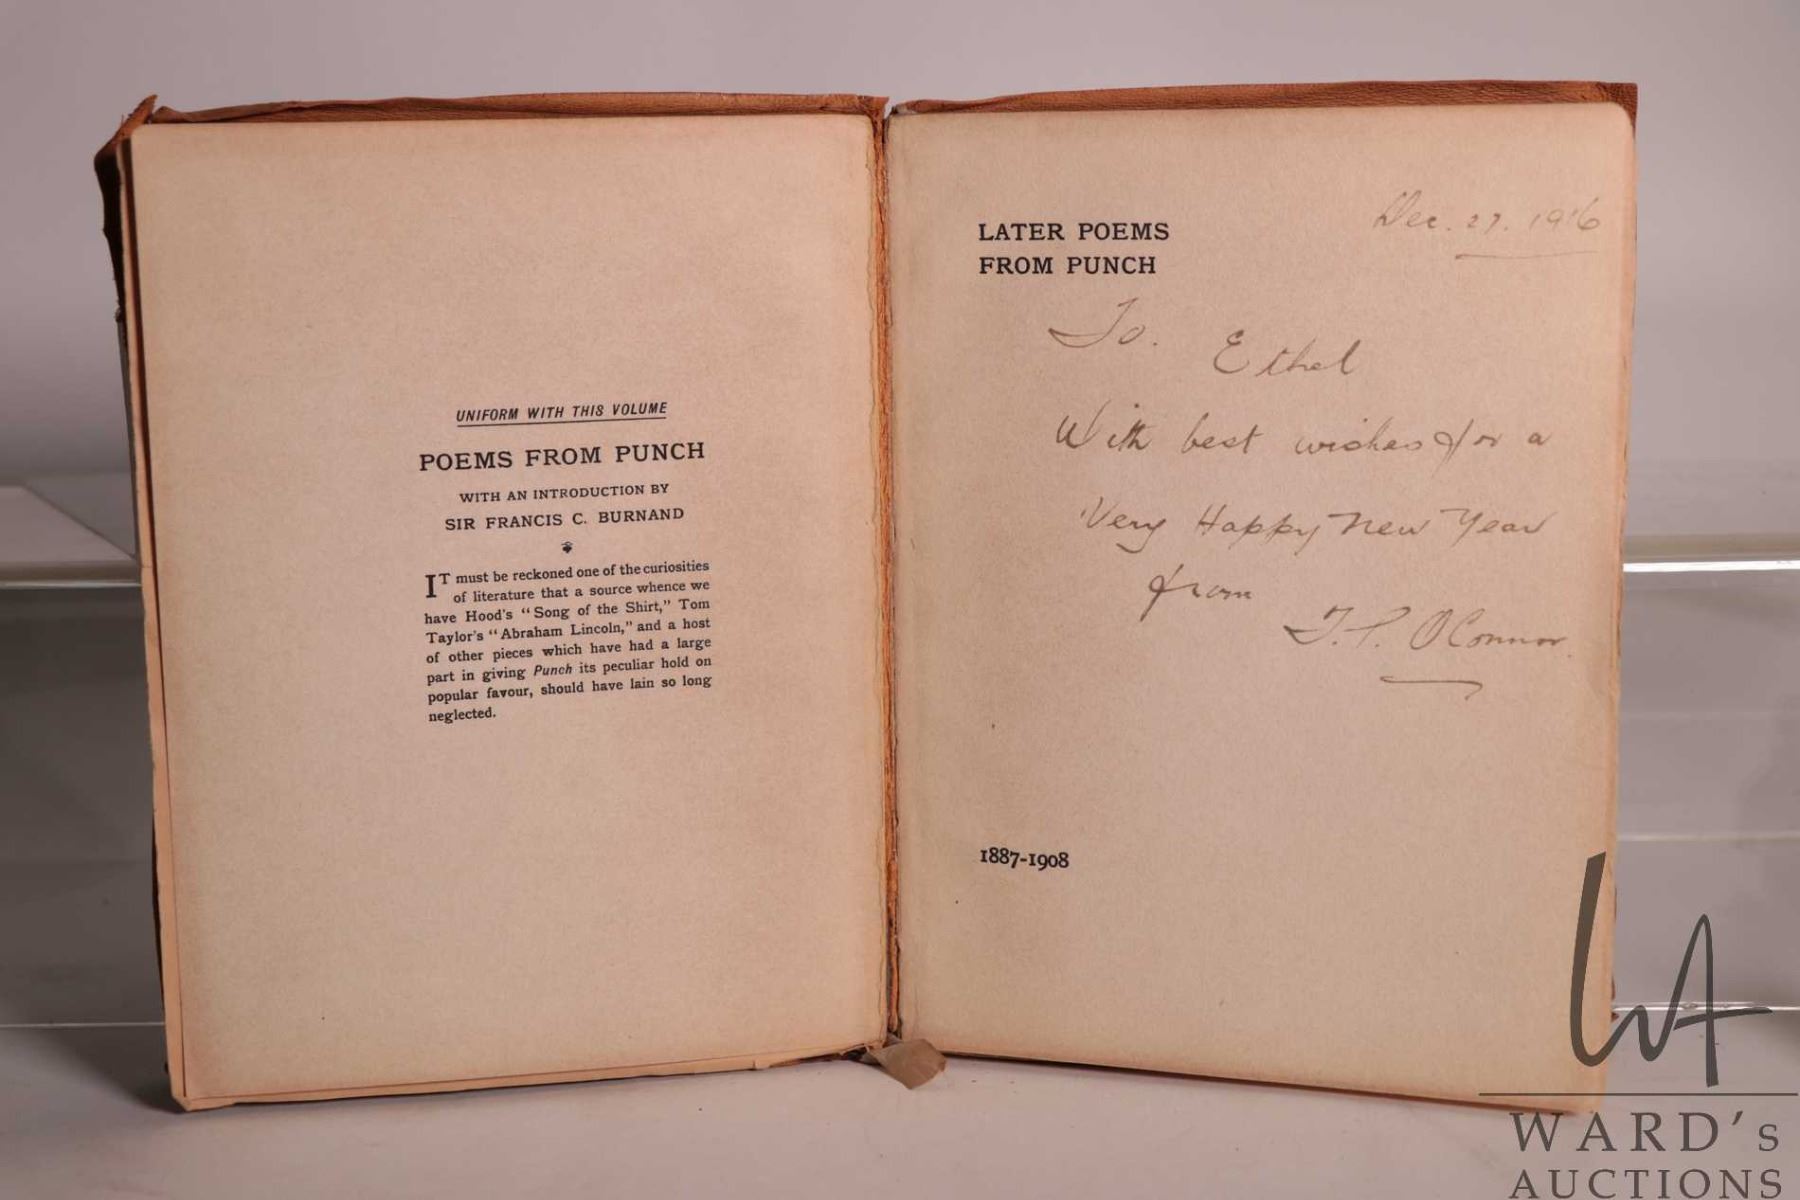 UNIFORM WITH THIS VOLUME
POEMS FROM PUNCH
WITH AN INTRODUCTION BY
SIR FRANCIS C. BURNAND
IT must be reckoned one of the curiosities
of literature that a source whence we
have Hood's "Song of the Shirt," Tom
Taylor's "Abraham Lincoln," and a host
of other pieces which have had a large
part in giving Punch its peculiar hold on
popular favour, should have lain so long
neglected.
Dec. 27. 1916
LATER POEMS
FROM PUNCH
To. Ethel
With best wishes for a
Very Happy New Year
from
T. P. O'Connor.
1887-1908
WA
WARD's
AUCTIONS